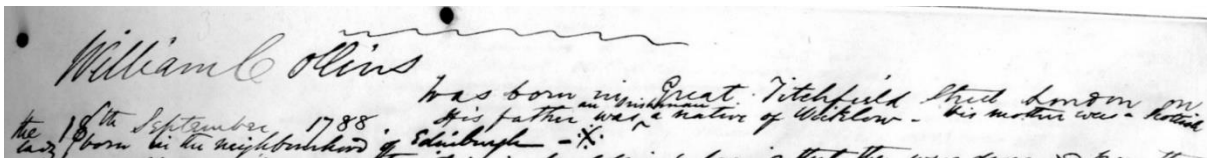 William Collins
was born in Great Titchfield Street London on
the 18th September 1788. His father was an Irishman a native of Wicklow - his mother was a Scottish
lady (born in the neighbourhood of Edinburgh -